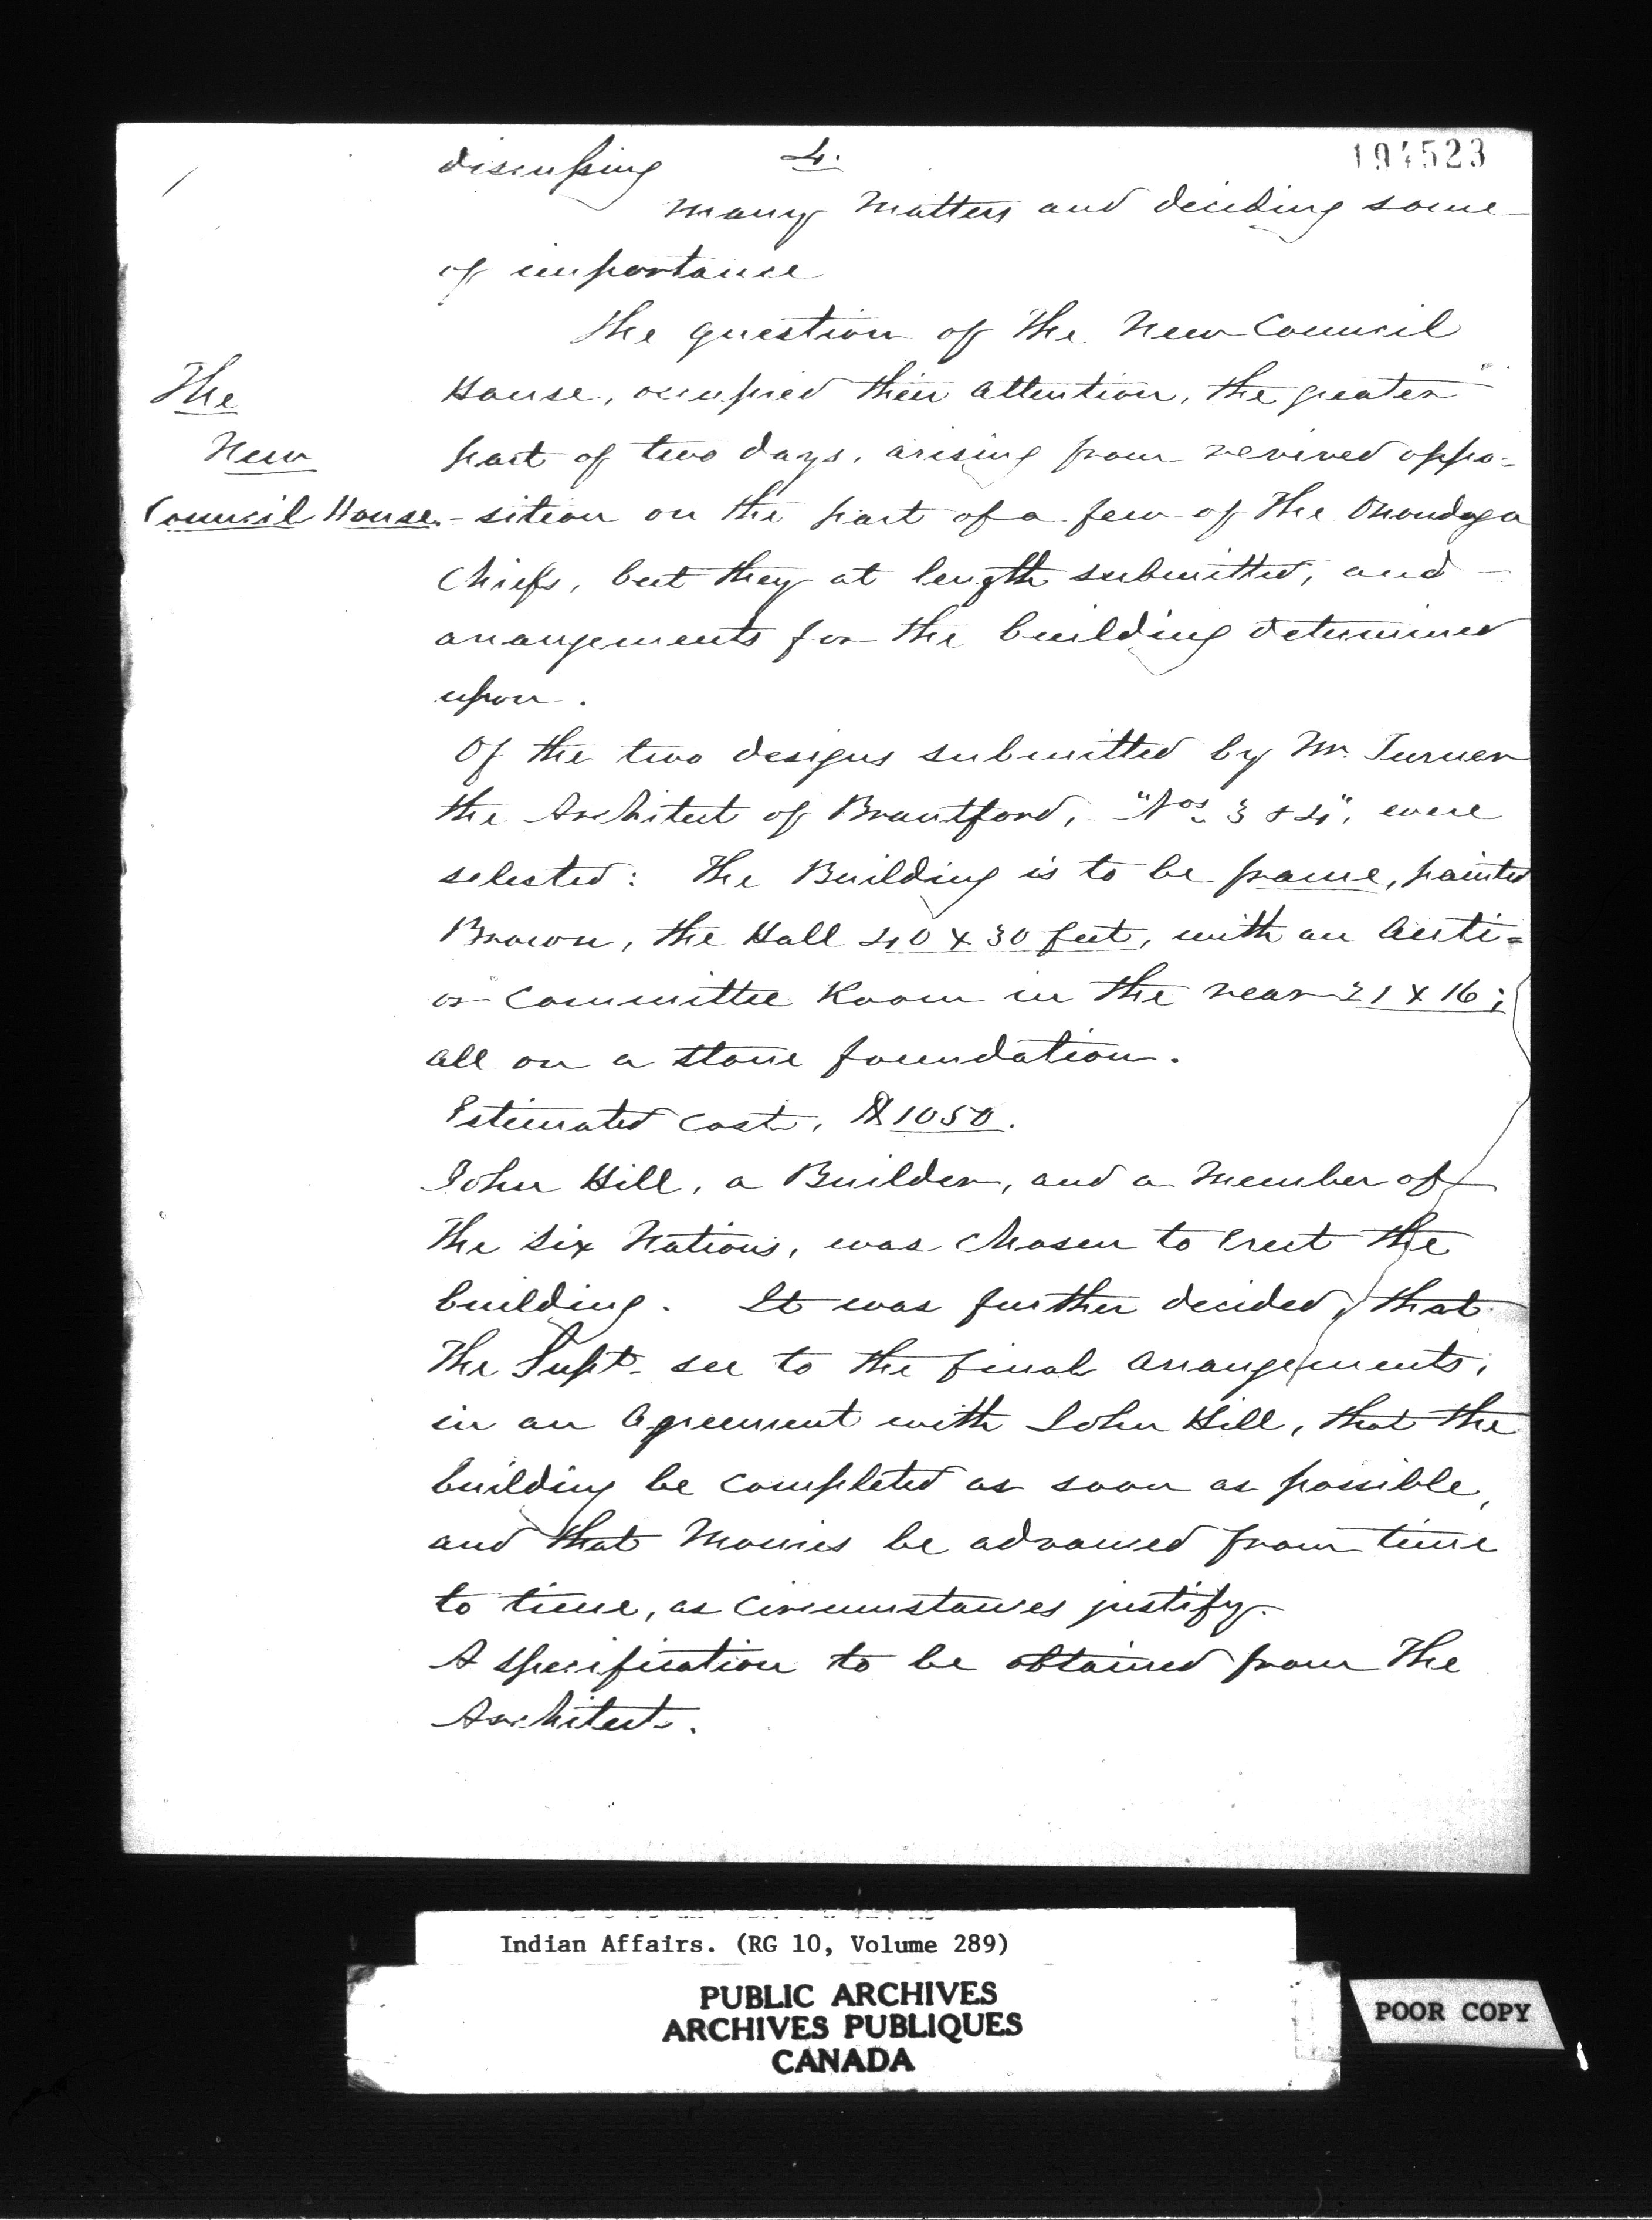 discussing 4. 194523
many matters and deciding some
of importance
The question of the New Council
The House, occupied their attention, the greater
New part of two days, arising from revived oppo-
Council House. -sition on the part of a few of the Onondaga
Chiefs, but they at length submitted, and
arangements for the building determined
upon.
Of the two designs submitted by Mr. Turner
the Architect of Brantford, "Nos. 3 & 4", were
selected: The Building is to be frame, painted
Brown, the Hall 40 x 30 feet, with an Anti=
or Committee Room in the rear 21 x 16;
all on a stone foundation.
Estimated cost, $1050.
John Hill, a Builder, and a Member of
the Six Nations, was chosen to erect the
building. It was further decided, that
the Supt. see to the final arangements,
in an Agreement with John Hill, that the
building be completed as soon as possible,
and that Monies be advanced from time
to time, as circumstances justify.
A specification to be obtained from the
Architect.
Indian Affairs. (RG 10, Volume 289)
PUBLIC ARCHIVES
ARCHIVES PUBLIQUES
CANADA
POOR COPY